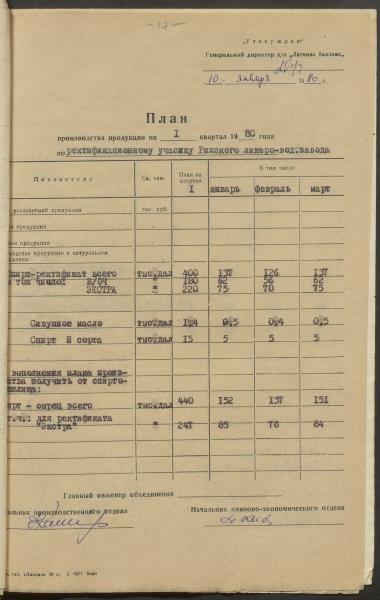 - 18 -
„Утверждаю"
Генеральный директор п/о „Латвияс балзамс"
10. января 1980 г.
План
производства продукции на I квартал 1980 года
по ректификационному участку Рижского ликеро-вод.завода
Показатели Ед. изм. План на квартал I В том числе:
январь февраль март
реализуемой продукции тыс. руб.
продукции
продукции
продукции в натуральном
Спирт-ректификат всего тыс.дал 400 137 126 137
в том числе: В/ОЧ " 180 62 56 62
ЭКСТРА " 220 75 70 75
Сивушное масло тыс.дал 1,4 0,5 0,4 0,5
Спирт II сорта тыс.дал 15 5 5 5
выполнения плана произ-
ства получить от спирто-
рт - сырец всего тыс.дал 440 152 137 151
т.ч.: для ректификата
"Экстра" " 247 85 78 84
Главный инженер объединения
чальник производственного отдела Начальник планово-экономического отдела